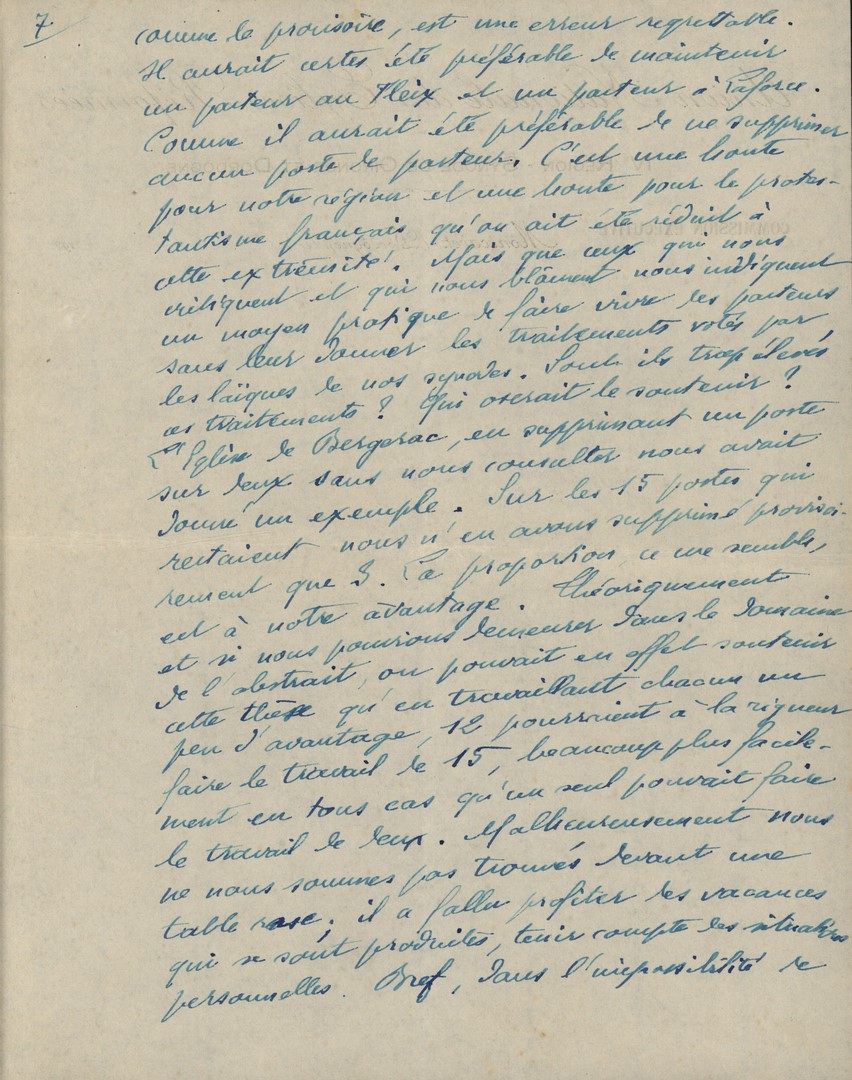 7.
comme le provisoire, est une erreur regrettable.
Il aurait certes été préférable de maintenir
un pasteur au Fleix et un pasteur à Laforce.
Comme il aurait été préférable de ne supprimer
aucun poste de pasteur. C'est une honte
pour notre région et une honte pour le protes-
tantisme français qu'on ait été réduit à
cette extrémité. Mais que ceux qui nous
critiquent et qui nous blâment nous indiquent
un moyen pratique de faire vivre des pasteurs
sans leur donner les traitements votés par
les laïques de nos synodes. Sont-ils trop élevés
ces traitements ? Qui oserait le soutenir ?
L'Eglise de Bergerac, en supprimant un poste
sur deux sans nous consulter nous avait
donné un exemple. Sur les 15 postes qui
restaient nous n'en avons supprimé provisoi-
rement que 3. La proportion ce me semble,
est à notre avantage. Théoriquement
et si nous pouvions demeurer dans le domaine
de l'abstrait, on pouvait en effet soutenir
cette thèse qu'en travaillant chacun un
peu d'avantage, 12 pourraient à la rigueur
faire le travail de 15, beaucoup plus facile-
ment en tous cas qu'un seul pouvait faire
le travail de deux. Malheureusement nous
ne nous sommes pas trouvés devant une
table rase; il a fallu profiter des vacances
qui se sont produites, tenir compte des situations
personnelles. Bref, dans l'impossibilité de